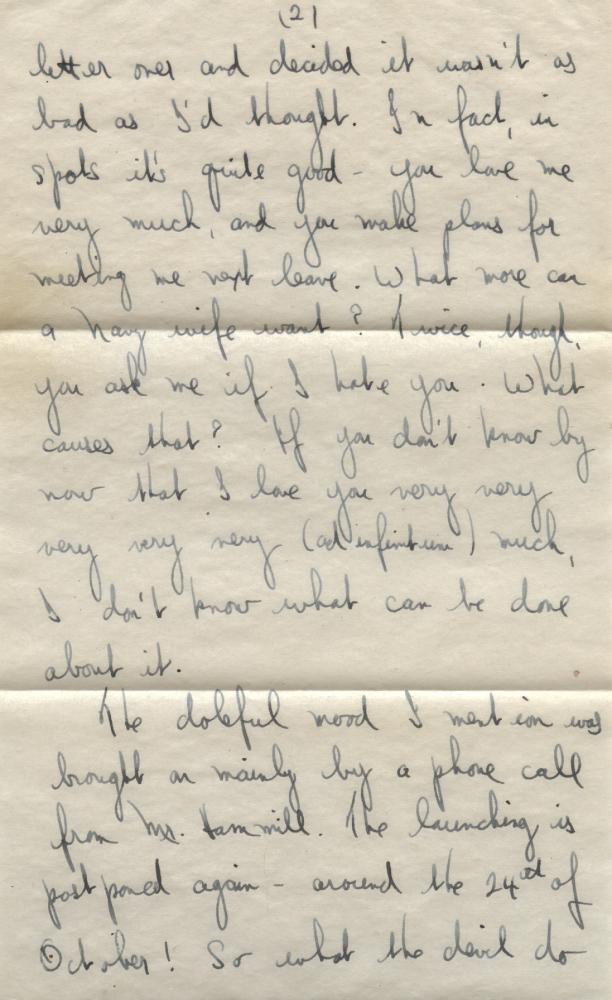 (2)
letter over and decided it wasn't as
bad as I'd thought. In fact, in
spots it's quite good - you love me
very much, and you make plans for
meeting me next leave. What more can
a Navy wife want? Twice, though,
you ask me if I hate you. What
causes that? If you don't know by
now that I love you very very
very very very (ad infinitum) much,
I don't know what can be done
about it.
The doleful mood I mention was
brought on mainly by a phone call
from Mr. Hammill. The launching is
postponed again - around the 24th of
October! So what the devil do